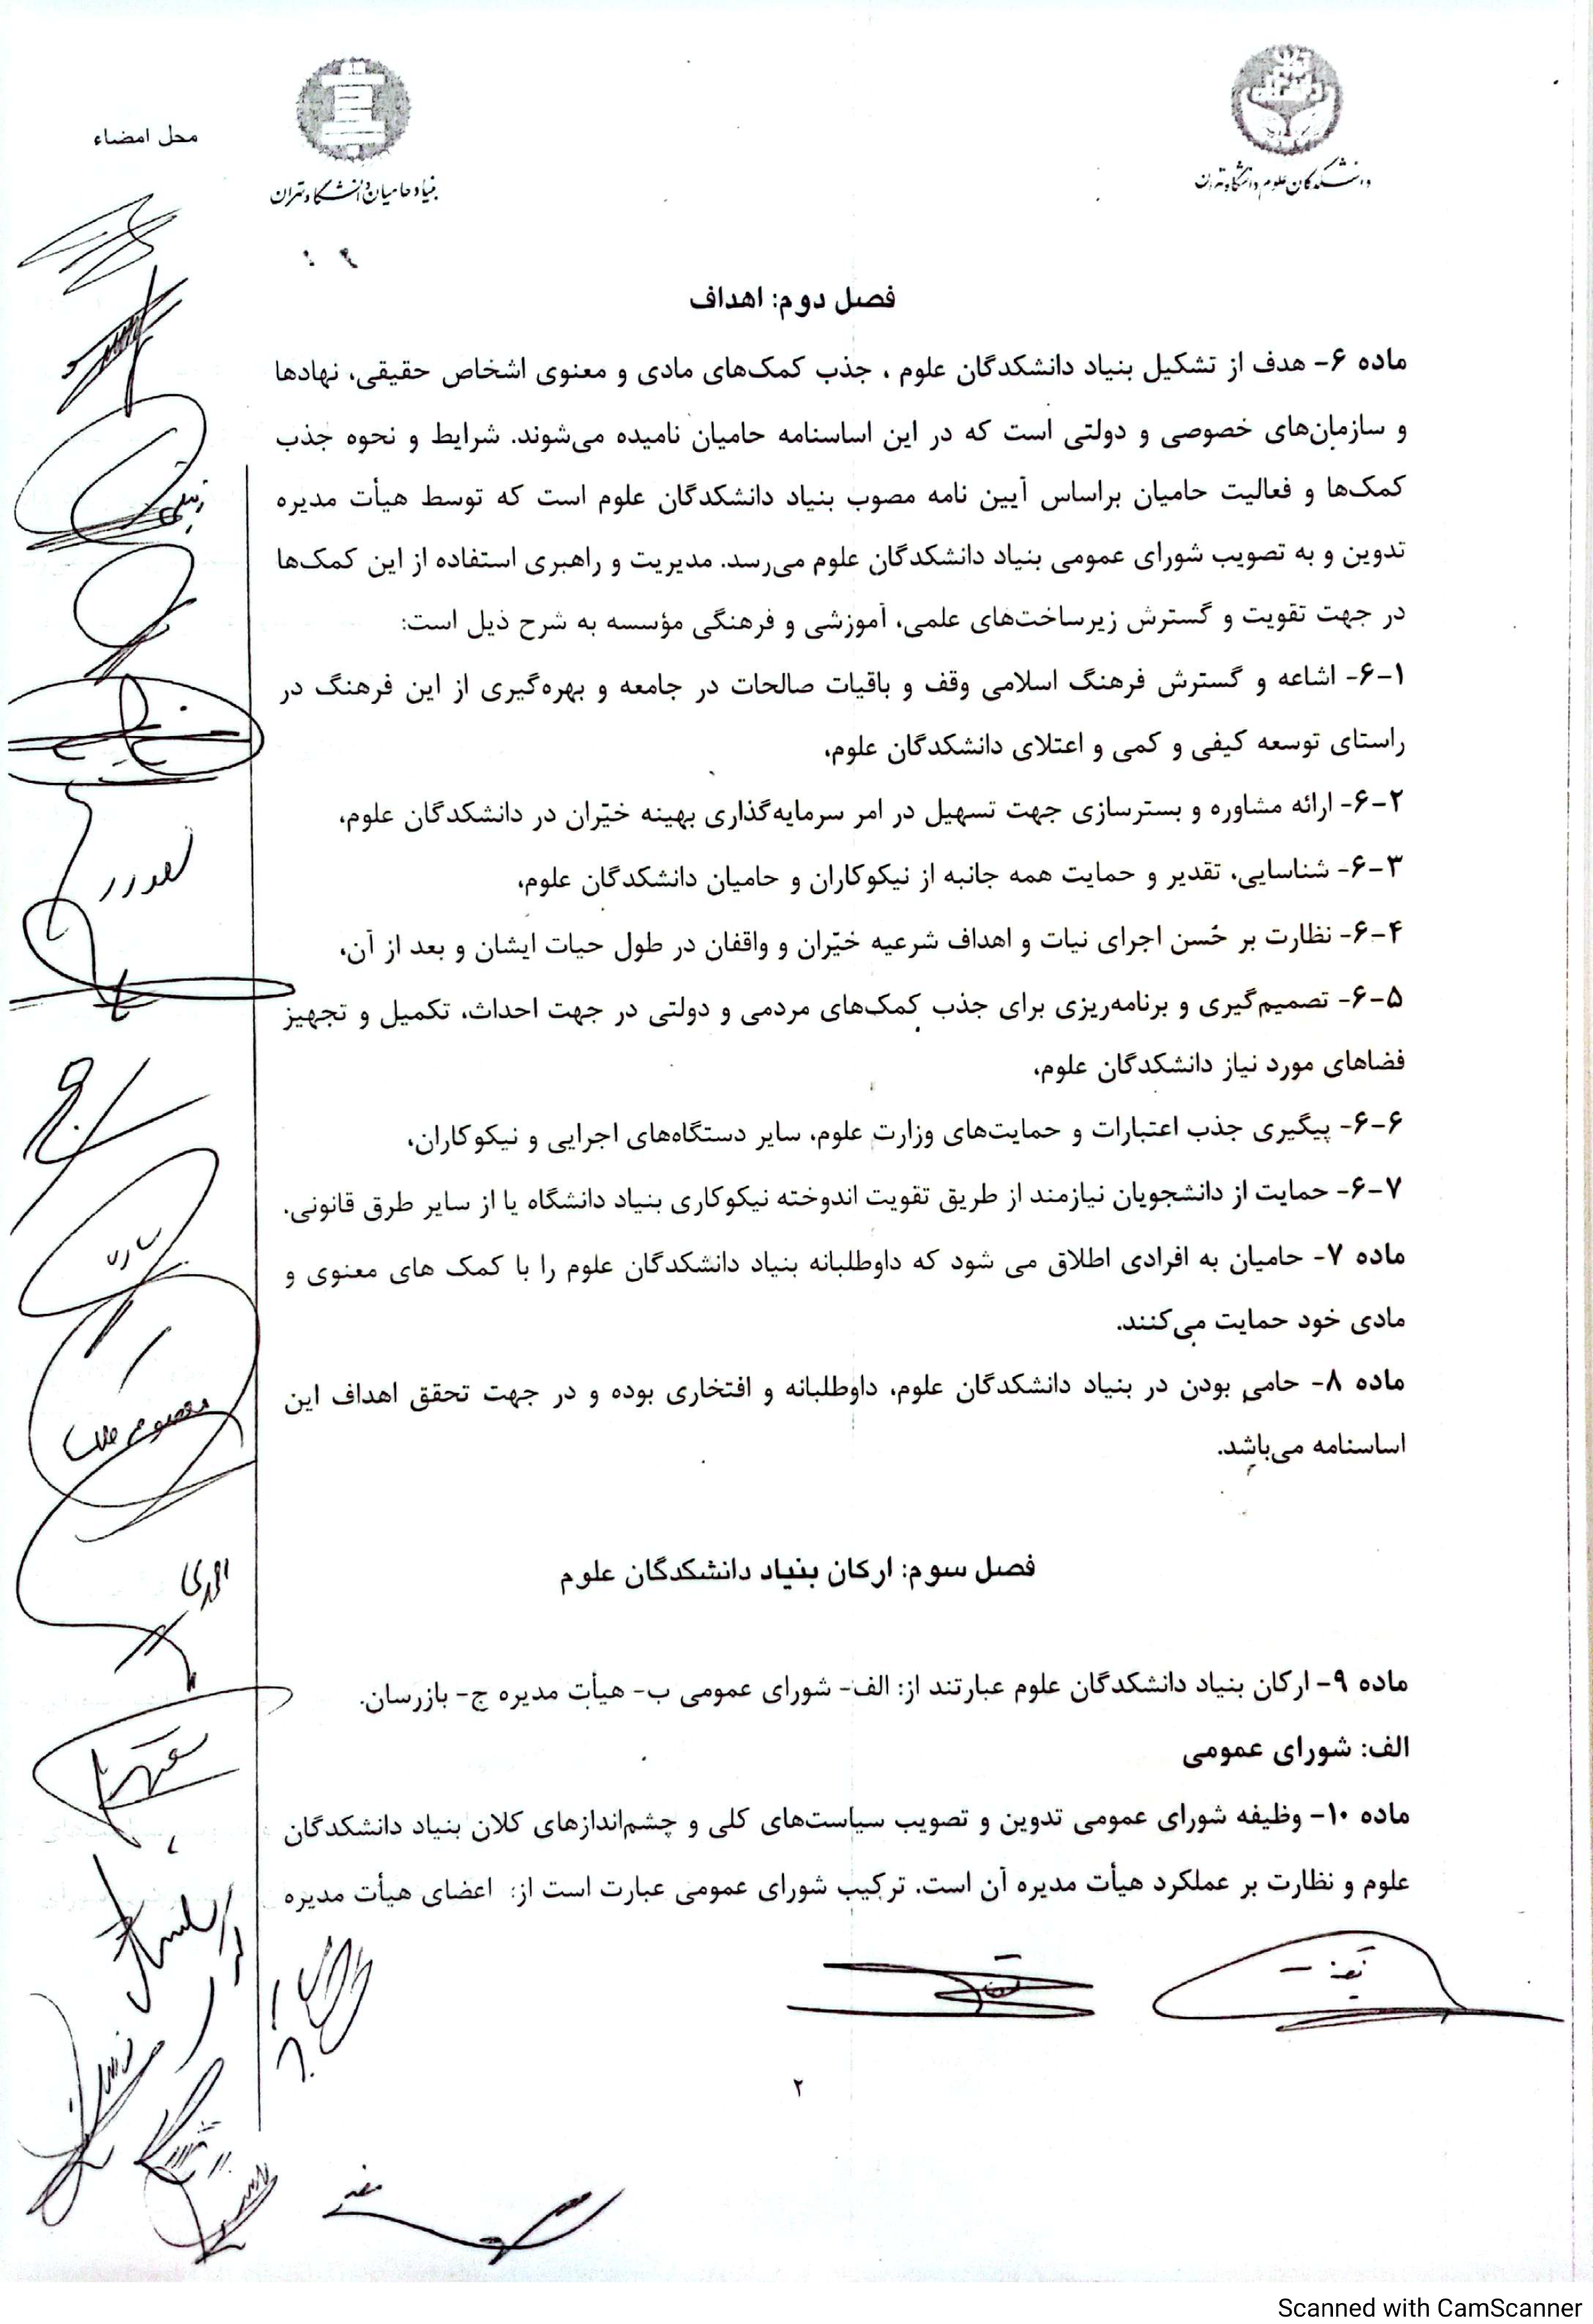 دانشکدگان علوم دانشگاه تهران
بنیاد حامیان دانشگاه تهران
محل امضاء
فصل دوم: اهداف
ماده ۶- هدف از تشکیل بنیاد دانشکدگان علوم ، جذب کمک‌های مادی و معنوی اشخاص حقیقی، نهادها
و سازمان‌های خصوصی و دولتی است که در این اساسنامه حامیان نامیده می‌شوند. شرایط و نحوه جذب
کمک‌ها و فعالیت حامیان براساس آیین نامه مصوب بنیاد دانشکدگان علوم است که توسط هیأت مدیره
تدوین و به تصویب شورای عمومی بنیاد دانشکدگان علوم می‌رسد. مدیریت و راهبری استفاده از این کمک‌ها
در جهت تقویت و گسترش زیرساخت‌های علمی، آموزشی و فرهنگی مؤسسه به شرح ذیل است:
۶-۱- اشاعه و گسترش فرهنگ اسلامی وقف و باقیات صالحات در جامعه و بهره‌گیری از این فرهنگ در
راستای توسعه کیفی و کمی و اعتلای دانشکدگان علوم،
۶-۲- ارائه مشاوره و بسترسازی جهت تسهیل در امر سرمایه‌گذاری بهینه خیّران در دانشکدگان علوم،
۶-۳- شناسایی، تقدیر و حمایت همه جانبه از نیکوکاران و حامیان دانشکدگان علوم،
۶-۴- نظارت بر حُسن اجرای نیات و اهداف شرعیه خیّران و واقفان در طول حیات ایشان و بعد از آن،
۶-۵- تصمیم‌گیری و برنامه‌ریزی برای جذب کمک‌های مردمی و دولتی در جهت احداث، تکمیل و تجهیز
فضاهای مورد نیاز دانشکدگان علوم،
۶-۶- پیگیری جذب اعتبارات و حمایت‌های وزارت علوم، سایر دستگاه‌های اجرایی و نیکوکاران،
۶-۷- حمایت از دانشجویان نیازمند از طریق تقویت اندوخته نیکوکاری بنیاد دانشگاه یا از سایر طرق قانونی.
ماده ۷- حامیان به افرادی اطلاق می شود که داوطلبانه بنیاد دانشکدگان علوم را با کمک های معنوی و
مادی خود حمایت می‌کنند.
ماده ۸- حامی بودن در بنیاد دانشکدگان علوم، داوطلبانه و افتخاری بوده و در جهت تحقق اهداف این
اساسنامه می‌باشد.
فصل سوم: ارکان بنیاد دانشکدگان علوم
ماده ۹- ارکان بنیاد دانشکدگان علوم عبارتند از: الف- شورای عمومی ب- هیأت مدیره ج- بازرسان.
الف: شورای عمومی
ماده ۱۰- وظیفه شورای عمومی تدوین و تصویب سیاست‌های کلی و چشم‌اندازهای کلان بنیاد دانشکدگان
علوم و نظارت بر عملکرد هیأت مدیره آن است. ترکیب شورای عمومی عبارت است از: اعضای هیأت مدیره
۲
Scanned with CamScanner